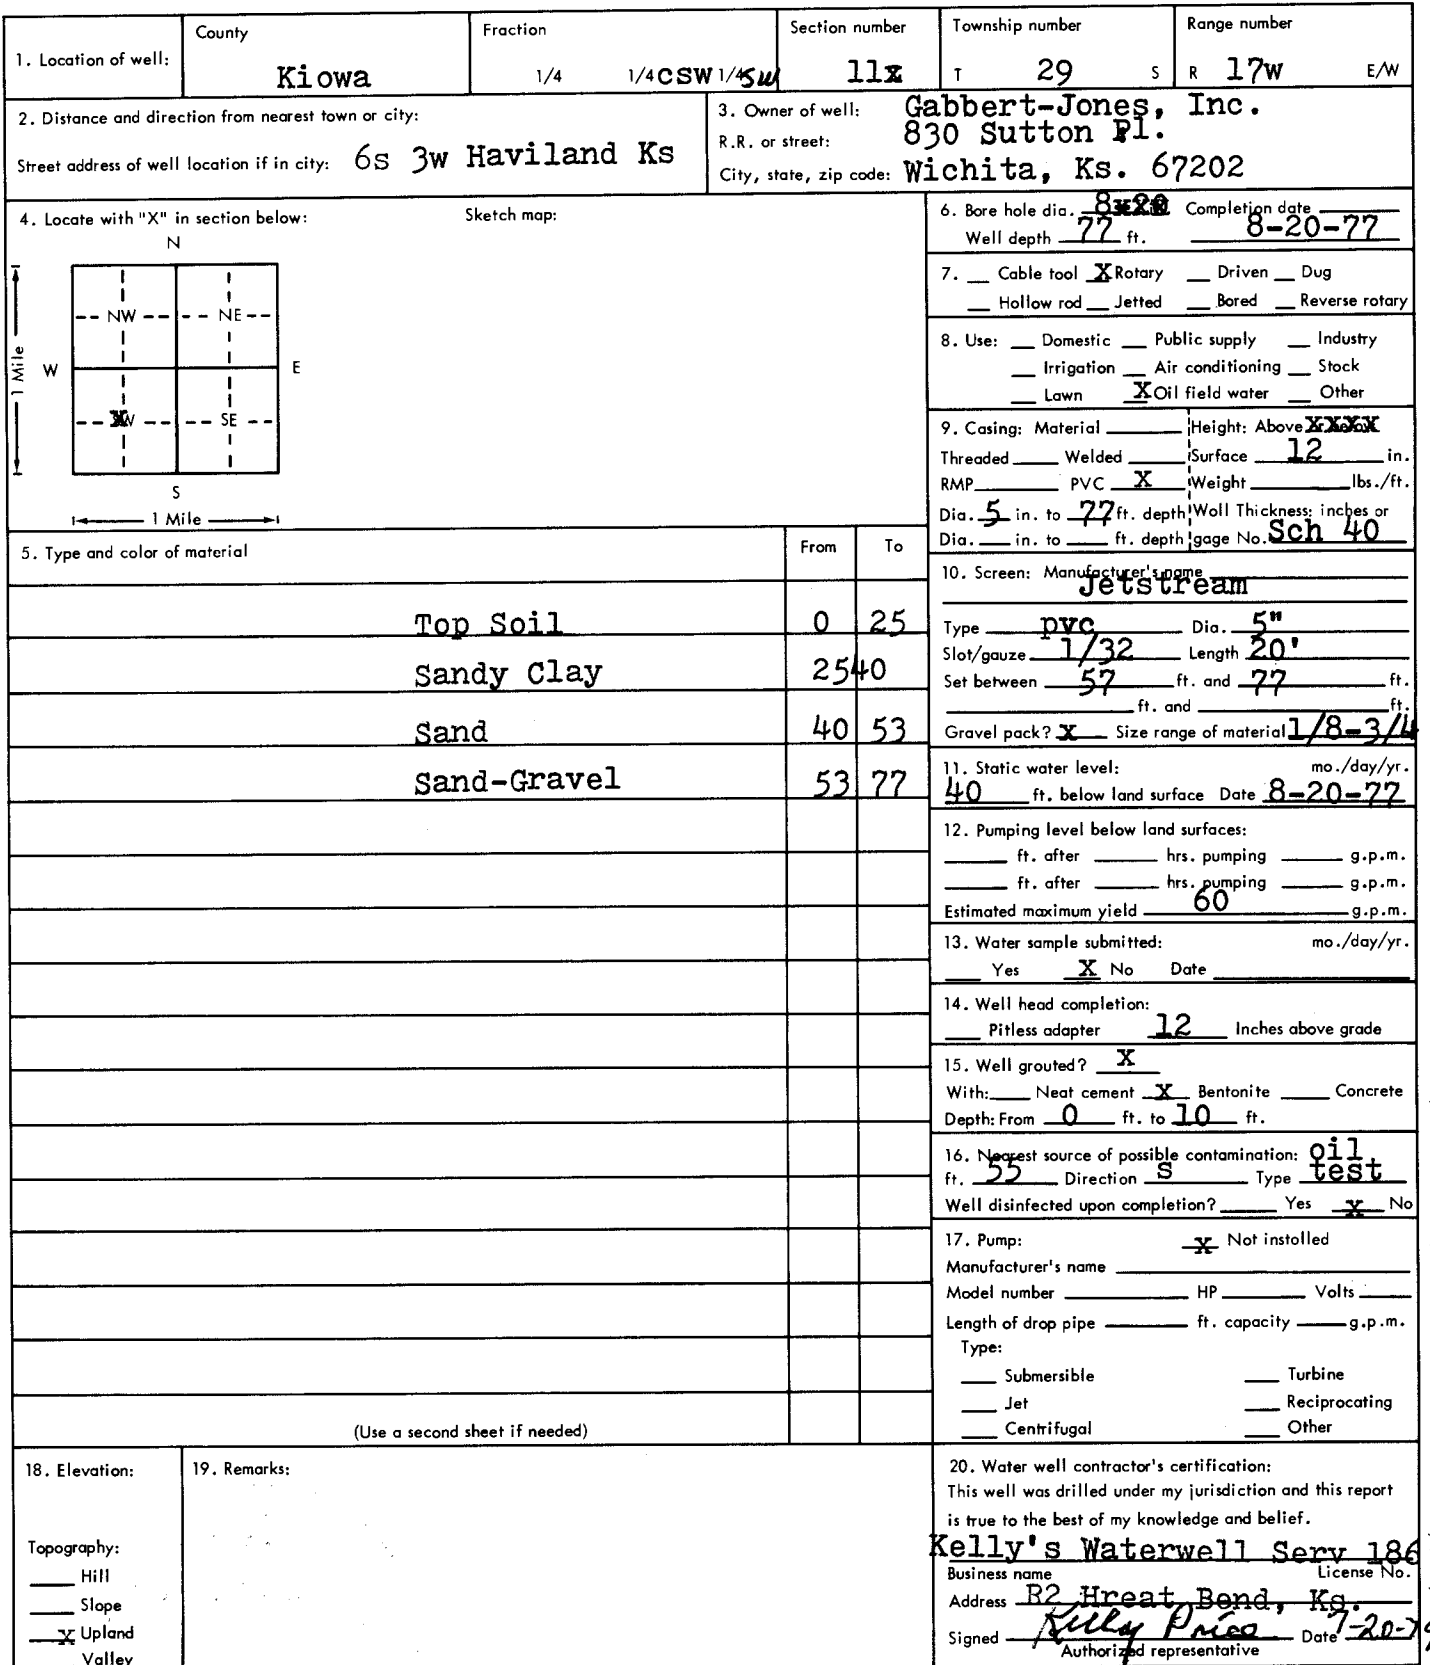 County Fraction Section number Township number Range number
1. Location of well: Kiowa 1/4 1/4 CSW 1/4 SW 11 T 29 S R 17W E/W
2. Distance and direction from nearest town or city:
Street address of well location if in city: 6s 3w Haviland Ks
3. Owner of well: Gabbert-Jones, Inc.
R.R. or street: 830 Sutton Pl.
City, state, zip code: Wichita, Ks. 67202
4. Locate with "X" in section below: Sketch map:
N
NW NE
W E
1 Mile
X SE
S
1 Mile
5. Type and color of material From To
Top Soil 0 25
Sandy Clay 25 40
Sand 40 53
Sand-Gravel 53 77
(Use a second sheet if needed)
6. Bore hole dia. 8 Completion date
Well depth 77 ft. 8-20-77
7. Cable tool X Rotary Driven Dug
Hollow rod Jetted Bored Reverse rotary
8. Use: Domestic Public supply Industry
Irrigation Air conditioning Stock
Lawn X Oil field water Other
9. Casing: Material Height: Above XXXX
Threaded Welded Surface 12 in.
RMP PVC X Weight lbs./ft.
Dia. 5 in. to 77 ft. depth Woll Thickness: inches or
Dia. in. to ft. depth gage No. Sch 40
10. Screen: Manufacturer's name
Jetstream
Type pvc Dia. 5"
Slot/gauze 1/32 Length 20'
Set between 57 ft. and 77 ft.
ft. and ft.
Gravel pack? X Size range of material 1/8-3/4
11. Static water level: mo./day/yr.
40 ft. below land surface Date 8-20-77
12. Pumping level below land surfaces:
ft. after hrs. pumping g.p.m.
ft. after hrs. pumping g.p.m.
Estimated maximum yield 60 g.p.m.
13. Water sample submitted: mo./day/yr.
Yes X No Date
14. Well head completion:
Pitless adapter 12 Inches above grade
15. Well grouted? X
With: Neat cement X Bentonite Concrete
Depth: From 0 ft. to 10 ft.
16. Nearest source of possible contamination: oil
ft. 55 Direction S Type test
Well disinfected upon completion? Yes X No
17. Pump: X Not instolled
Manufacturer's name
Model number HP Volts
Length of drop pipe ft. capacity g.p.m.
Type:
Submersible Turbine
Jet Reciprocating
Centrifugal Other
18. Elevation:
Topography:
Hill
Slope
X Upland
Valley
19. Remarks:
20. Water well contractor's certification:
This well was drilled under my jurisdiction and this report
is true to the best of my knowledge and belief.
Kelly's Waterwell Serv 186
Business name License No.
Address R2 Hreat Bend, Ks.
Signed Kelly Price Date
Authorized representative